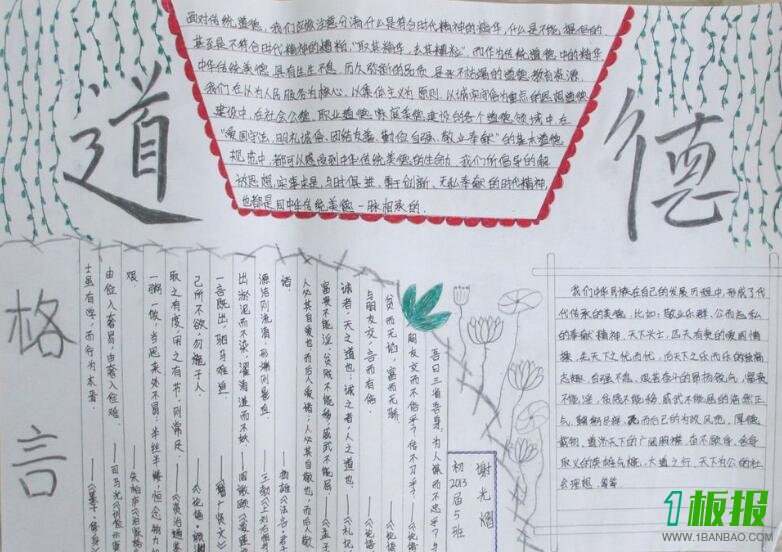 道
德
面对传统道德，我们应该注意分清什么是符合时代精神的精华，什么是不能提倡的
甚至是不符合时代精神的糟粕，“取其精华，去其糟粕”，而作为传统道德中的精华
中华传统美德，具有生生不息，历久弥新的品质，是
我们在以为人民服务为核心，以集体主义为原则，以诚实守信为重点的思想道德
建设中，在社会公德，职业道德，家庭美德建设的各个道德领域中，在
“爱国守法，明礼诚信，团结友善，勤俭自强，敬业奉献”的基本道德
规范中，都可以感受到中华传统美德的生命力，我们所倡导的解
放思想，实事求是，与时俱进，勇于创新，无私奉献的时代精神，
也都是同中华传统美德一脉相承的．
格言
吾日三省吾身，为人谋而不忠乎？与
朋友交而不信乎？传不习乎？
贫而无谄，富而无骄
与朋友交，言而有信
诚者，天之道也；诚之者，人之道也．
富贵不能淫，贫贱不能移，威武不能屈
人必其自爱也，而后人爱诸；人必其自敬也，而后人敬
诸
源洁则流清，形端则影直
出淤泥而不染，濯清涟而不妖
一言既出，驷马难追
己所不欲，勿施于人．
取之有度，用之有节，则常足．
一粥一饭，当思来处不易；半丝半缕，恒念物力
艰
由俭入奢易，由奢入俭难．
士虽有学，而行为本焉
初2013届5班
谢光
我们中华民族在自己的发展历程中，形成了代
代传承的美德，比如：敬业乐群，公而忘私
的奉献精神，天下兴亡，匹夫有责的爱国情
操，先天下之忧而忧，后天下之乐而乐的崇高
志趣，自强不息，艰苦奋斗的昂扬锐气，富贵
不能淫，贫贱不能移，威武不能屈的浩然正
气，厚德
载物，道济天下的广阔胸襟，奋不顾身，舍身
取义的英雄气概，大道之行，天下为公的社
会理想，等等
1板报
WWW.1BANBAO.COM